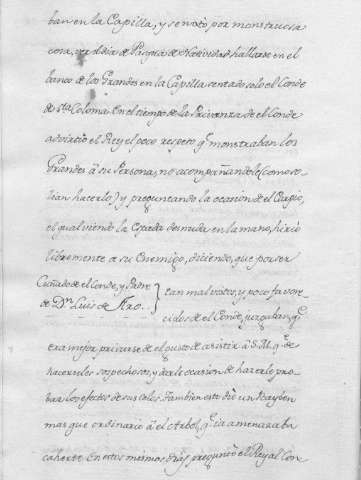 ban en la Capilla, y se notò por monstruosa
cosa, ver el dia de Pasqua de Natividad hallarse en el
banco de los Grandes en la Capilla sentado solo el Conde
de Sta. Coloma. En el tiempo de la Privanza de el Conde
advirtiò el Rey el poco respeto q.e monstraban los
Grandes à su Persona, no acompañandole (como so-
lian hacerlo) y preguntando la ocasion de el Carpio,
el qual viendo la Espada desnuda en la mano, hiriò
libremente a su Enemigo, diciendo, que por ser
Cuñado de el Conde, y Padre
de Dn. Luis de Aro.
tan mal vistos, y poco favore-
cidos de el Conde, juzgaban q.e
era mejor privarse de el gusto de asistir à S. M. q.e de
hacerseles sospechosos, y darle ocasion de hacerle pro-
bar los efectos de sus celos. Tambien esto diò un
mas que ordinario à el Arbol, q.e ia amenazaba
caherse. En estos mismos dias preguntò el Rey al Con